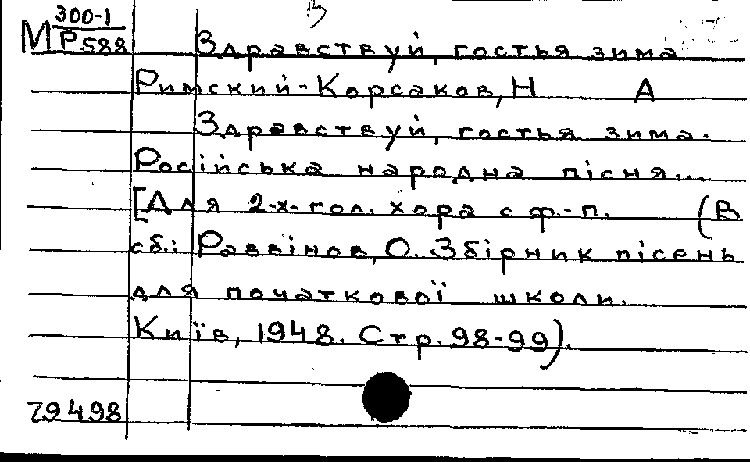 З
300-1
МР588 Здравствуй, гостья зима
Римский-Корсаков, Н А
Здравствуй, гостья зима.
Російська народна пісня...
[Для 2-х-гол. хора с ф.-п. (В
сб.: Раввінов, О. Збірник пісень
для початкової школи.
Київ, 1948. Стр. 98-99).
79498